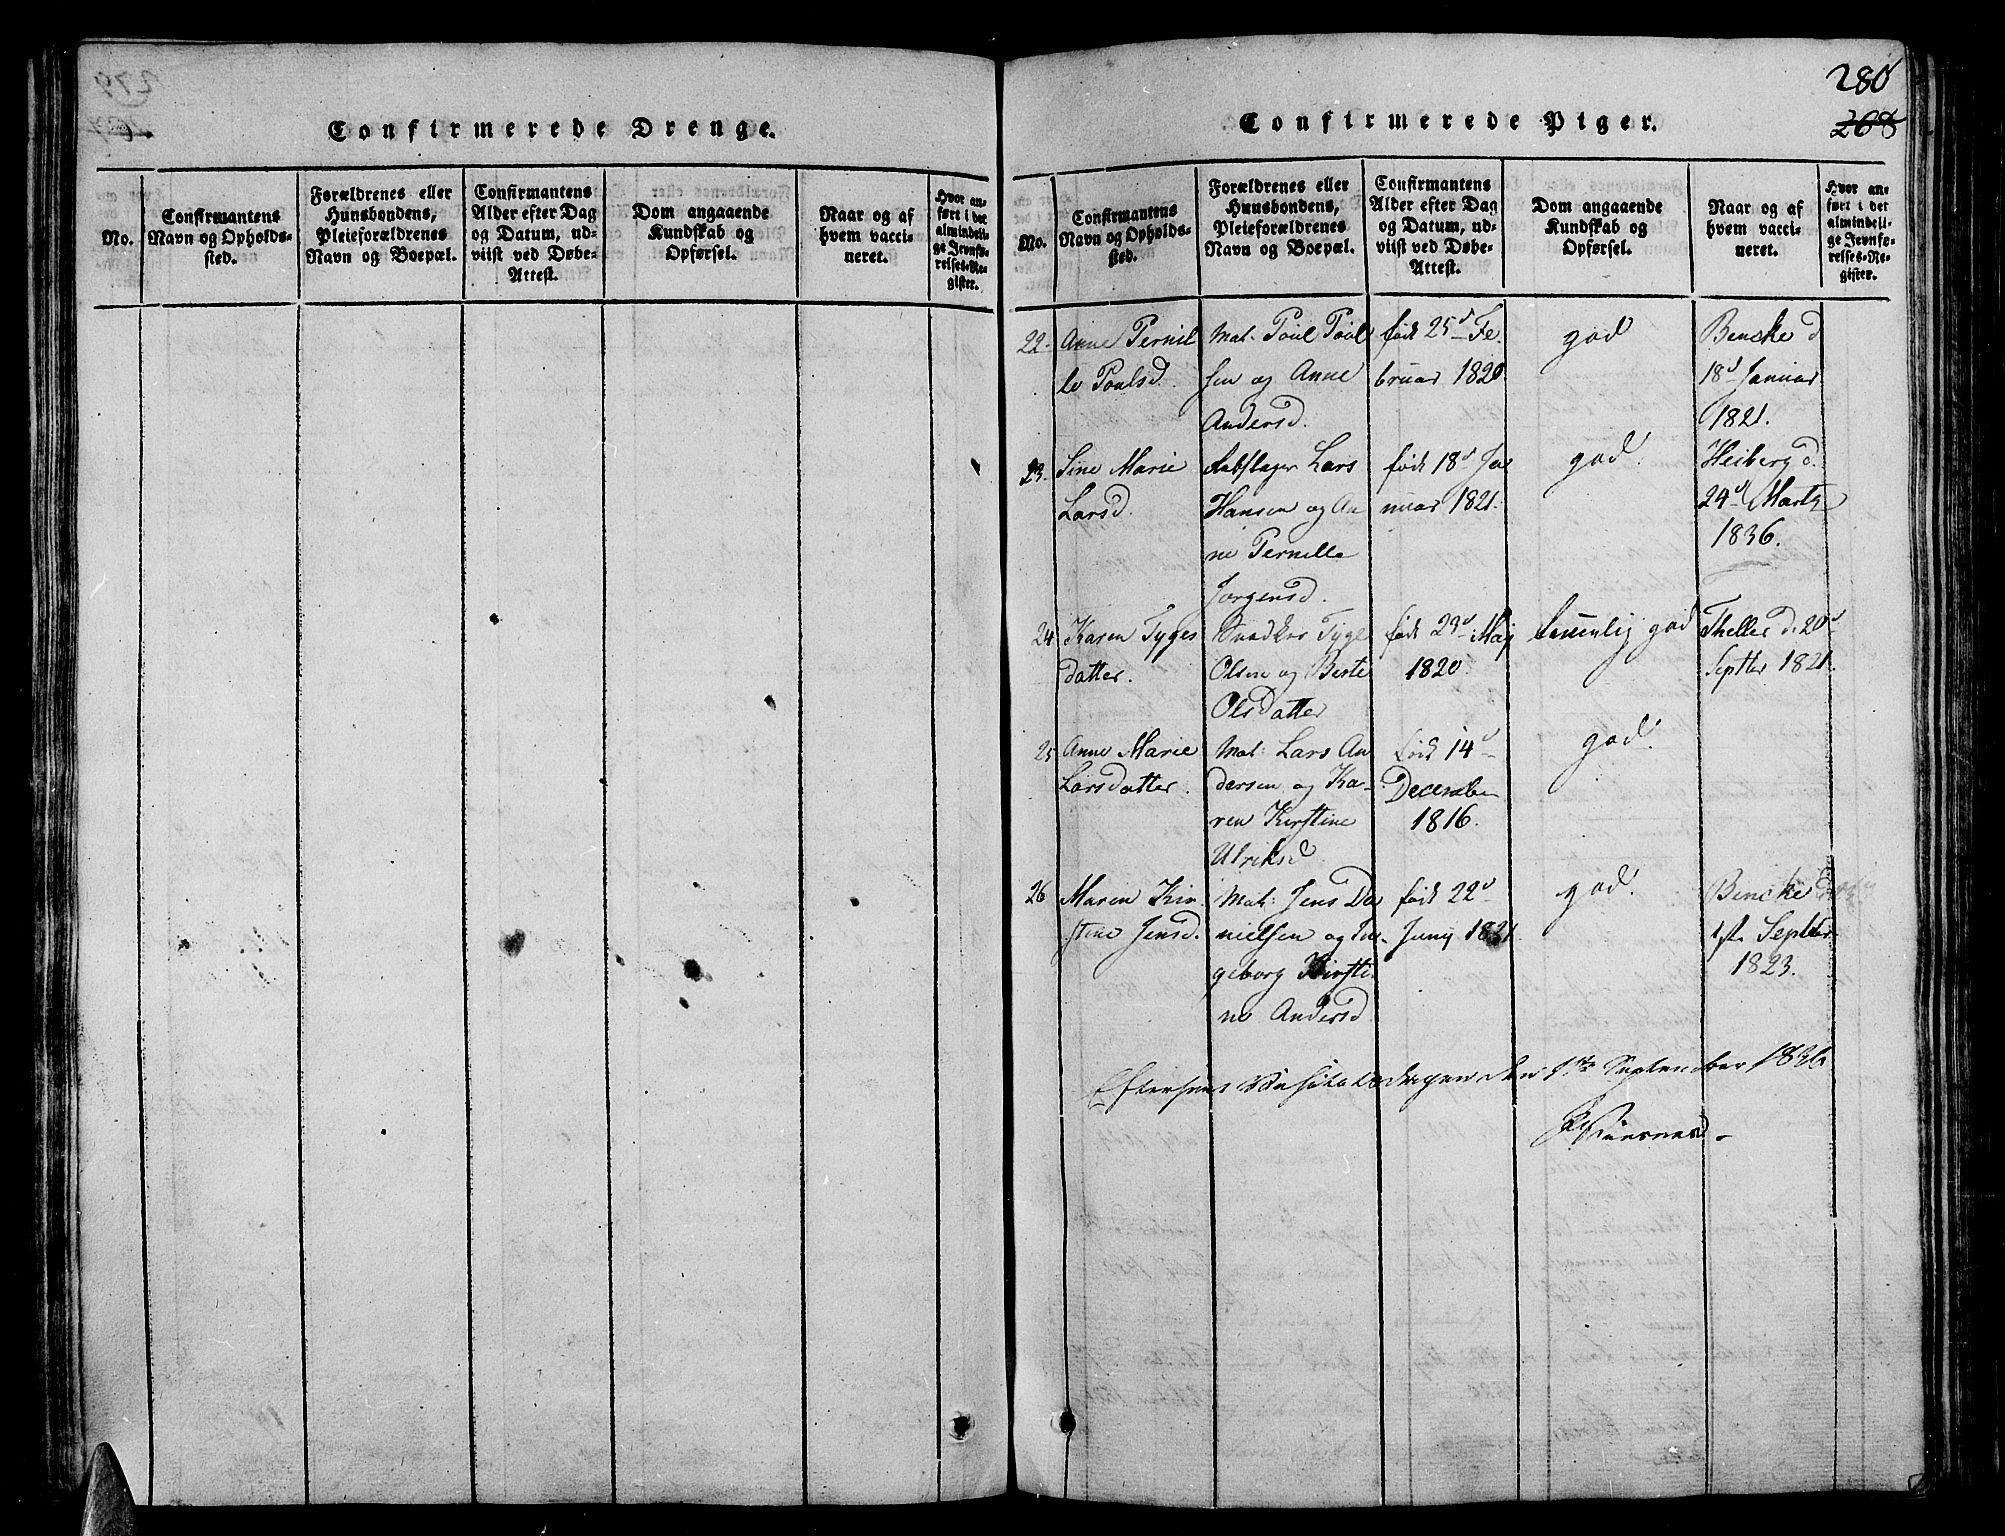 279
267
Confirmerede Drenge.
No.
Confirmantens
Navn og Opholds-
sted.
Forældrenes eller
Huusbondens,
Pleieforældrenes
Navn og Boepæl.
Confirmantens
Alder efter Dag
og Datum, ud-
viist ved Døbe-
Attest.
Dom angaaende
Kundskab og
Opførsel.
Naar og af
hvem vacci-
neret.
Hvor an-
ført i det
almindeli-
ge Jevnfø-
relses-Re-
gister.
280
268
Confirmerede Piger.
No.
Confirmantens
Navn og Opholds-
sted.
Forældrenes eller
Huusbondens,
Pleieforældrenes
Navn og Boepæl.
Confirmantens
Alder efter Dag
og Datum, ud-
viist ved Døbe-
Attest.
Dom angaaende
Kundskab og
Opførsel.
Naar og af
hvem vacci-
neret.
Hvor an-
ført i det
almindeli-
ge Jevnfø-
relses-Re-
gister.
22.
Anne Pernil
le Poulsd.
Mat. Poul Poul
sen og Anne
Andersd.
født 25d Fe
bruar 1820
god
Bencke d
18d Januar
1821.
23.
Sine Marie
Larsd.
Lars
Hansen og An
ne Pernille
Jørgensd.
født 18d Ja
nuar 1821.
god.
Heiberg d.
24d Marts
1836.
24
Karen Tyges
datter.
Snedker Tyge
Olsen og Berte
Olsdatter
født 29d Maj
1820.
temmelig god
Theller d. 20d
Septbr 1821.
25
Anne Marie
Larsdatter.
Mat: Lars An
dersen og Ka-
ren Kirstine
Ulriksd.
født 14d
December
1816.
god.
26
Maren Kir
stine Jensd.
Mat: Jens Da
nielsen og In-
geborg Kirsti
ne Andersd.
født 22d
Junij 1821
god.
Bencke d
1ste Septbr
1823.
Efterseet Visitatsdagen den 1ste September 1836